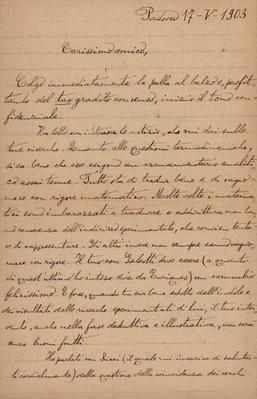 Padova 17-V-1903
Carissimo amico,
Colgo immediatamente la palla al balzo e, profit-
tando del tuo gradito consenso, inizio il tono con-
fidenziale.
Ho letto con interesse le notizie, che mi dai sulle
tue ricerche. Quanto alle questioni termodinamiche,
si sa bene che esse esigono un armamentario analiti-
co assai tenue. Tutto sta di tradur bene e di ragio-
nare con rigore matematico. Molte volte i matema-
tici sono imbarazzati a tradurre o addirittura non han-
no conoscenza dell'indirizzo sperimentale, che conviene tenta-
re di rappresentare. Gli altri invece non sempre sanno ragio-
nare con rigore. Il tuo con deve essere (a quanto
di quest'ultimo ho inteso dire da Enriques) un connubio
felicissimo. E forse, quando tu sia bene edotto dell'indole e
dei risultati delle ricerche sperimentali di lui, il tuo inter-
vento, anche nella fase deduttiva e illustrativa, non sarà
senza buoni frutti.
Ho parlato con (il quale mi incarica di salutar-
ti cordialmente) della questione della coincidenza dei cerchi